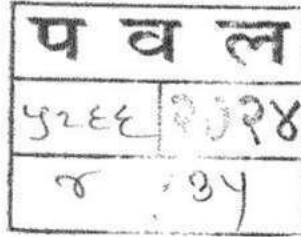 प व ल
५२६६ २०२४
४ ३५